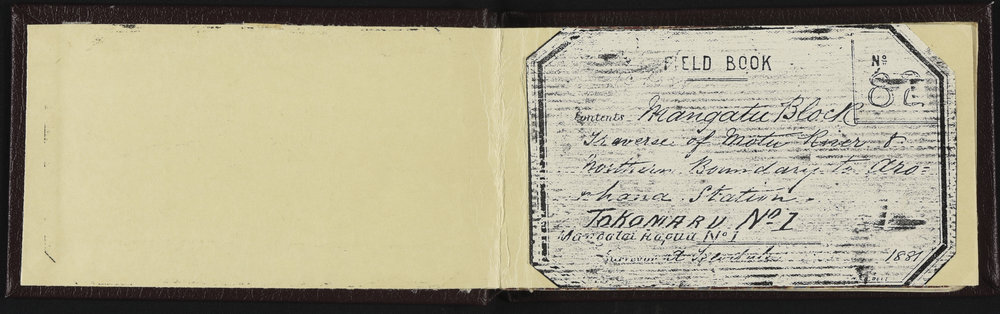 FIELD BOOK
Nº
82
Contents Mangatu Block
Traverse of Motu River &
Northern Boundary to Aro=
=hana Station.
TOKOMARU Nº 1
Nº 1
Surveyor
1881